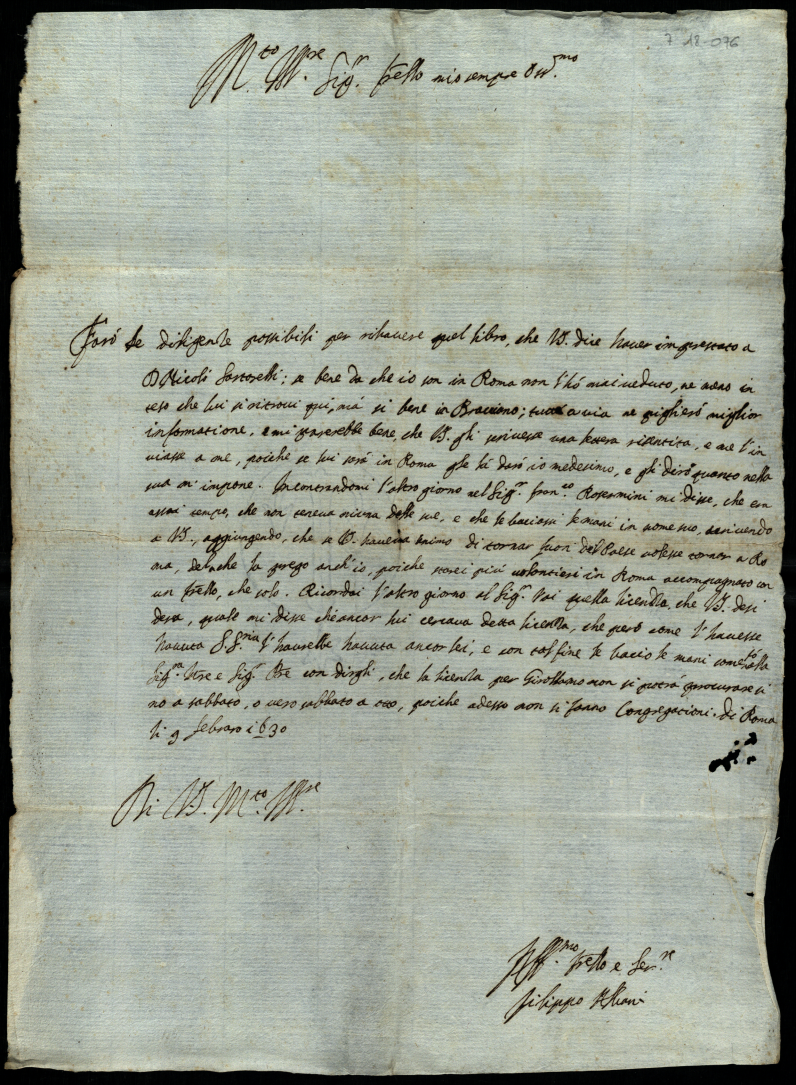 7 18-076
M.to Ill.re Sig.r frello mio sempre Oss.mo
Farò le diligenze possibili per rihavere quel libro, che V.S. dice haver imprestato a
D Nicolò Sartorelli; se bene da che io son in Roma non l'hò mai veduto, ne meno in
teso che lui si ritrovi qui, mà si bene in Bracciano; tutta via ne piglierò miglior
informatione, e mi parerebbe bene, che V.S. gli scrivesse una lettera risentita, e me l'in
viasse a me, poiche se lui serà in Roma gle la darò io medesimo, e gli dirò quanto nella
sua m' impone. Incontrandomi l'altro giorno nel Sig.r Fran.co Rosermini mi disse, che era
assai tempo, che non teneva niuna delle sue, e che le baciassi le mani in nome suo, scrivendo
a V.S., aggiungendo, che se V.S. haveva animo di tornar fuori del Paese volesse tornar a Ro
ma, del che la prego anch'io, poiche starei più volontieri in Roma accompagnato con
un frello, che solo. Ricordai l'altro giorno al Sig.r Vai quella licenza, che V.S. desi
dera, quale mi disse che ancor lui cercava detta licenza, che però come l'havesse
havuta S.S.ria l'haurebbe havuta ancor lei, e con tal fine le bacio le mani come alla
Sig.ra Mre e Sig.r Pre con dirgli, che la licenza per Girollamo non si potrà procurare si
no a sabbato, o vero sabbato a otto, poiche adesso non si fanno Congregationi. Di Roma
li 9 febraro 1630
Di V.S. M.to Ill.re
Aff.mo frello e Ser.re
Filippo